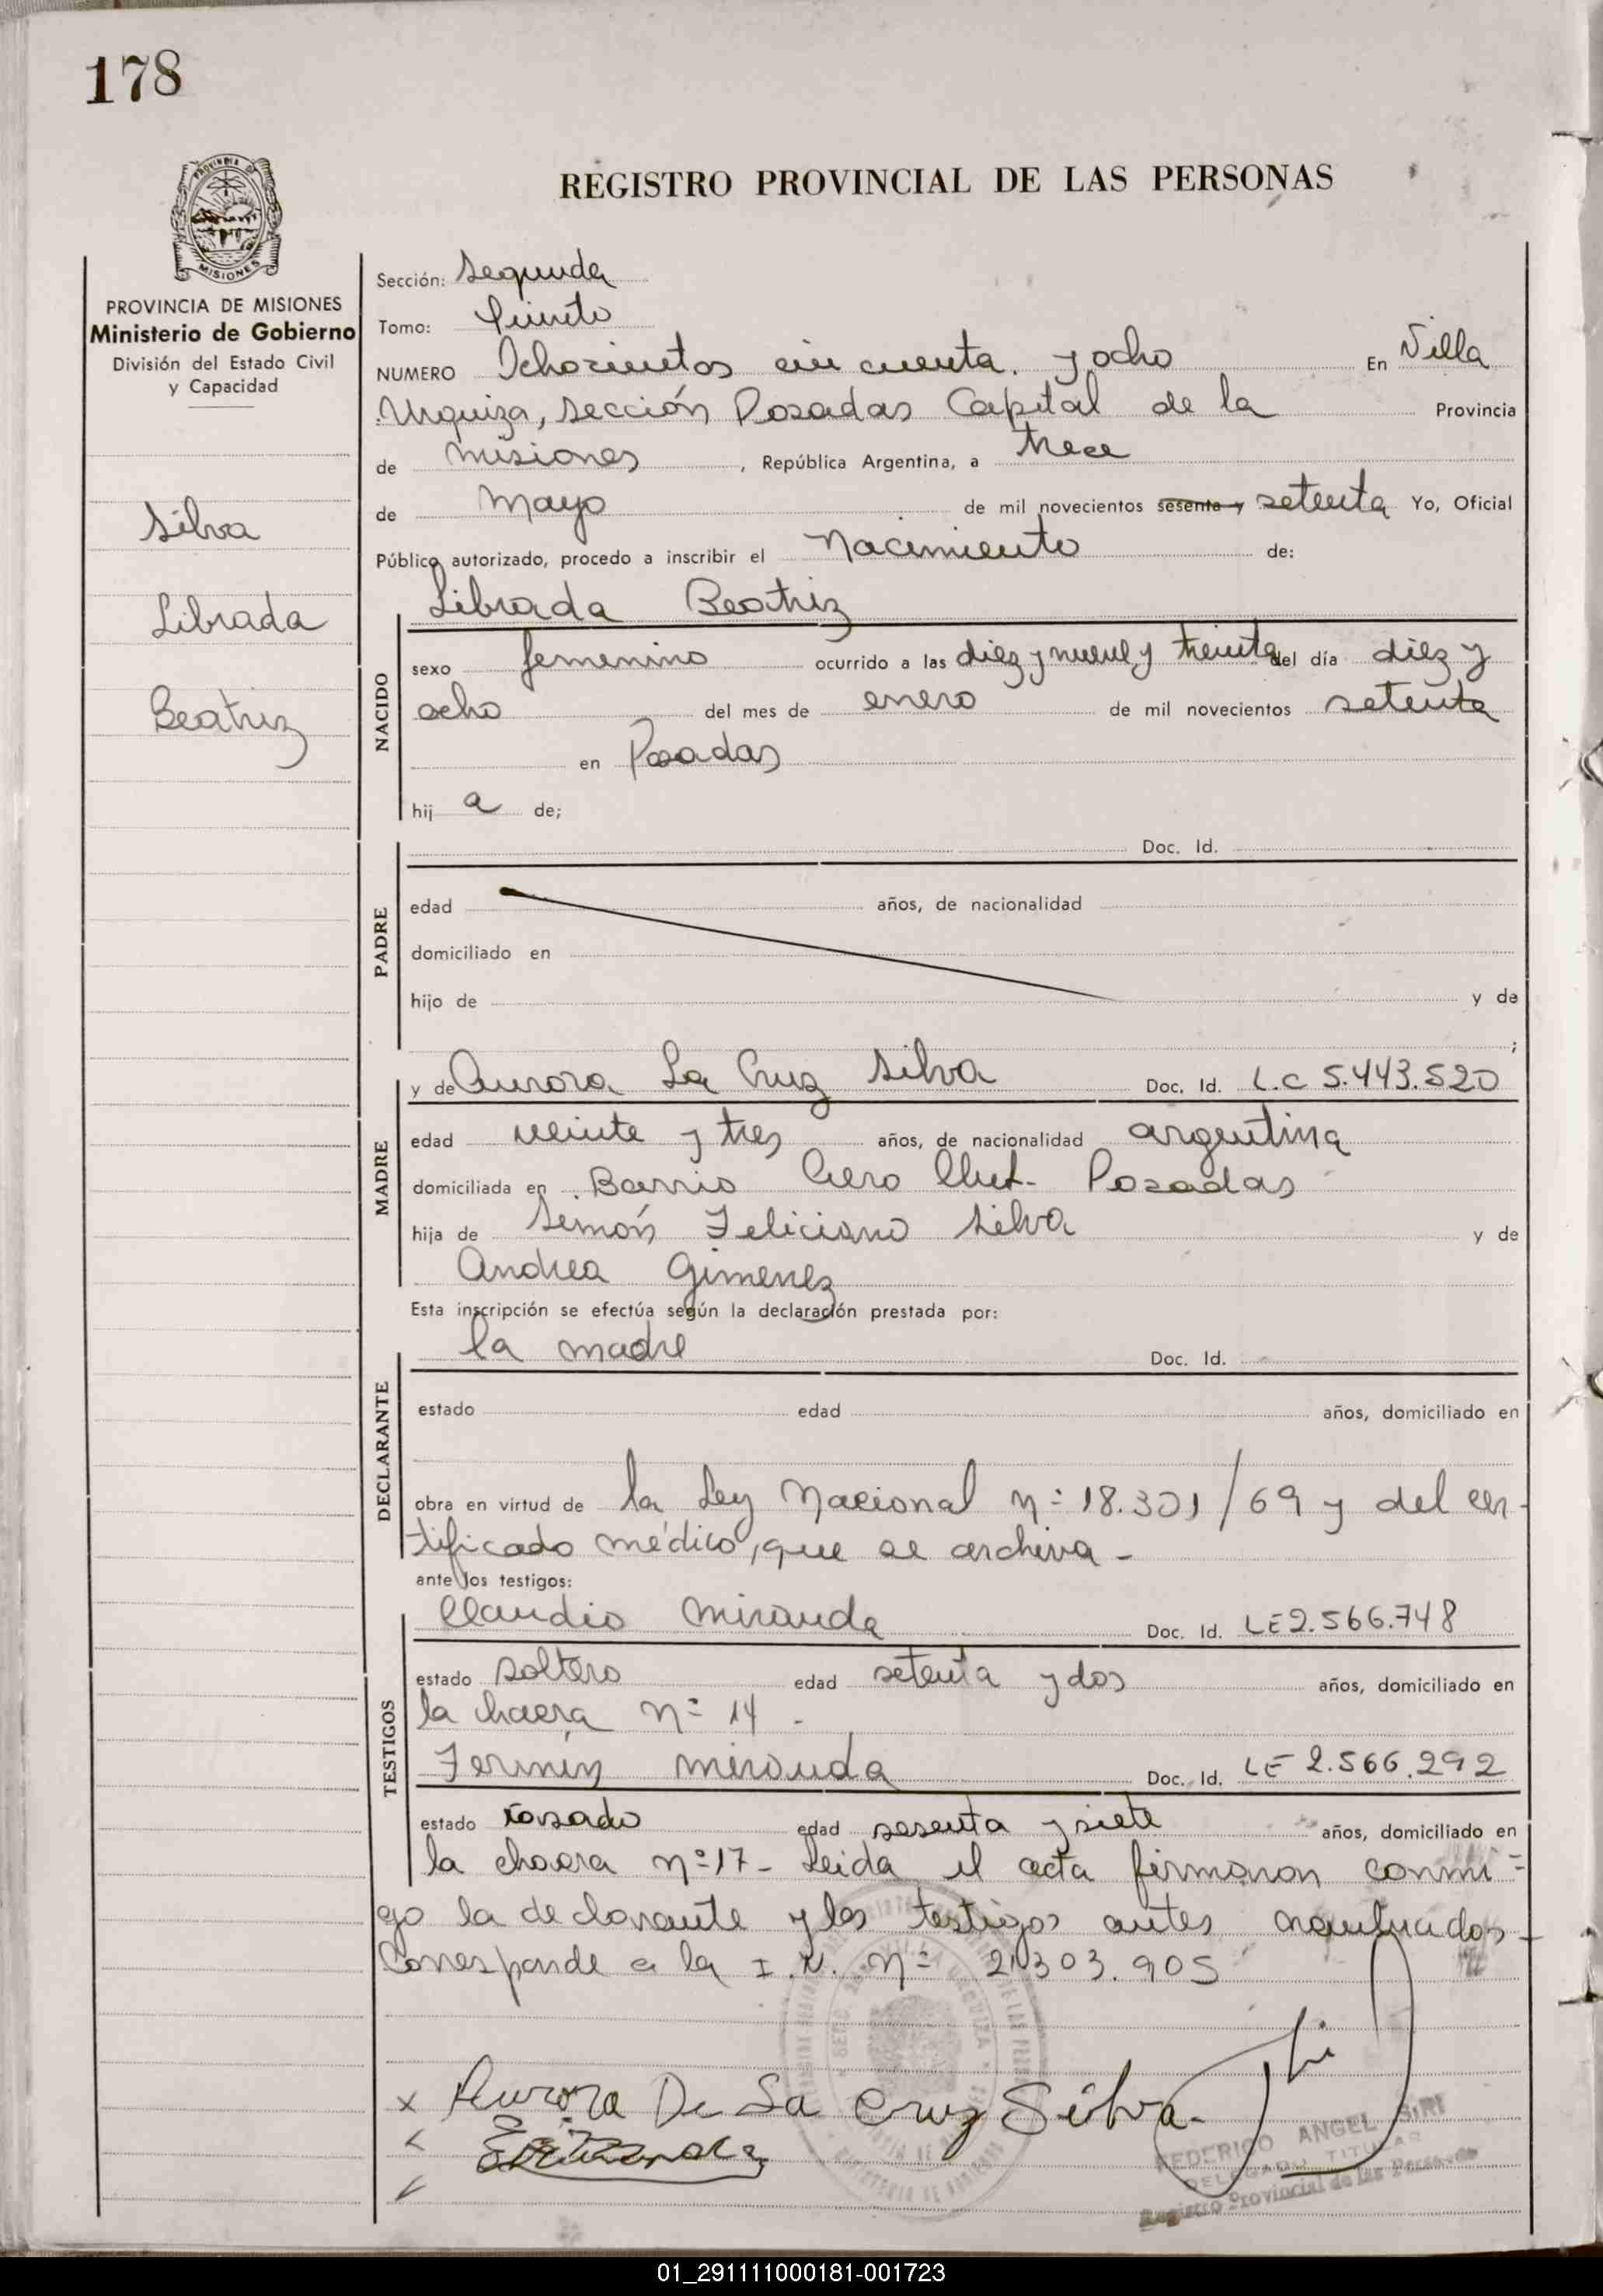 178
PROVINCIA DE
MISIONES
REGISTRO PROVINCIAL DE LAS PERSONAS
PROVINCIA DE MISIONES
Ministerio de Gobierno
División del Estado Civil
y Capacidad
Silva
Librada
Beatriz
Sección: Segunda
Tomo: Quinto
NUMERO Ochocientos cincuenta y ocho En Villa
Urquiza, Sección Posadas Capital de la Provincia
de Misiones, República Argentina, a trece
de Mayo de mil novecientos sesenta y setenta Yo, Oficial
Público autorizado, procedo a inscribir el Nacimiento de:
Librada Beatriz
NACIDO
sexo femenino ocurrido a las diez y nueve y treinta del día diez y
ocho del mes de enero de mil novecientos setenta
en Posadas
hij a de;
Doc. Id.
PADRE
edad años, de nacionalidad
domiciliado en
hijo de y de
;
y de Aurora La Cruz Silva Doc. Id. L.C 5.443.520
MADRE
edad veinte y tres años, de nacionalidad argentina
domiciliada en Barrio Posadas
hija de Semón Feliciano Silva y de
Andrea Gimenez
Esta inscripción se efectúa según la declaración prestada por:
la madre Doc. Id.
DECLARANTE
estado edad años, domiciliado en
obra en virtud de la Ley Nacional nº 18.301/69 y del cer-
tificado médico, que se archiva -
ante los testigos:
Claudio Miranda Doc. Id. LE 2.566.748
TESTIGOS
estado soltero edad setenta y dos años, domiciliado en
la chacra nº 14 -
Fermín Miranda Doc. Id. LE 2.566.292
estado casado edad sesenta y siete años, domiciliado en
la chacra nº 17 - Leida el acta firmaron conmi=
go la declarante y los testigos antes nombrados -
Corresponde a la I.N. nº 21303.905
x Aurora De La Cruz Silva
FEDERICO ANGEL SIRI
DELEGADO TITULAR
Registro Provincial de las Personas
01_291111000181-001723